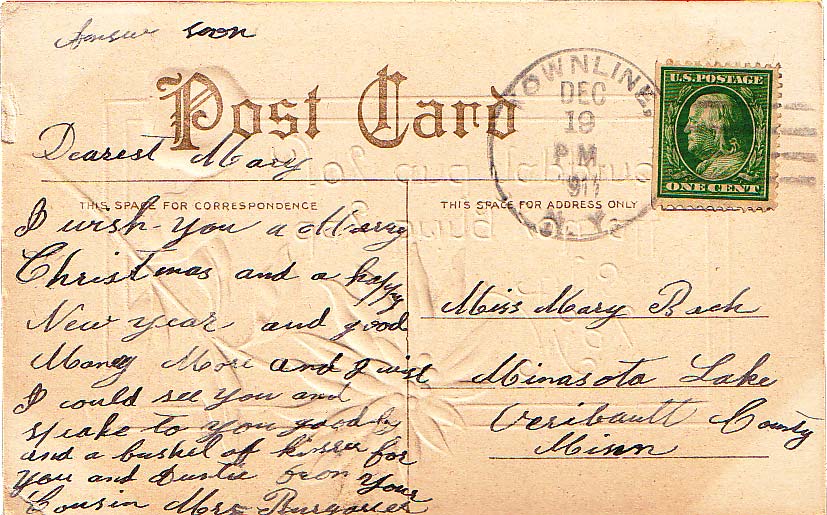 Answer soon
Post Card
TOWNLINE,
DEC
19
P.M.
1911
N.Y.
U.S. POSTAGE
ONE CENT
Dearest Mary
THIS SPACE FOR CORRESPONDENCE
THIS SPACE FOR ADDRESS ONLY
I wish you a Merry
Christmas and a happy
New year and good
Many More and I wish
I could see you and
speake to you good by
and a bushel of kisses for
you and from your
Cousin Mrs
Miss Mary Bach
Minasota Lake
Veribault County
Minn